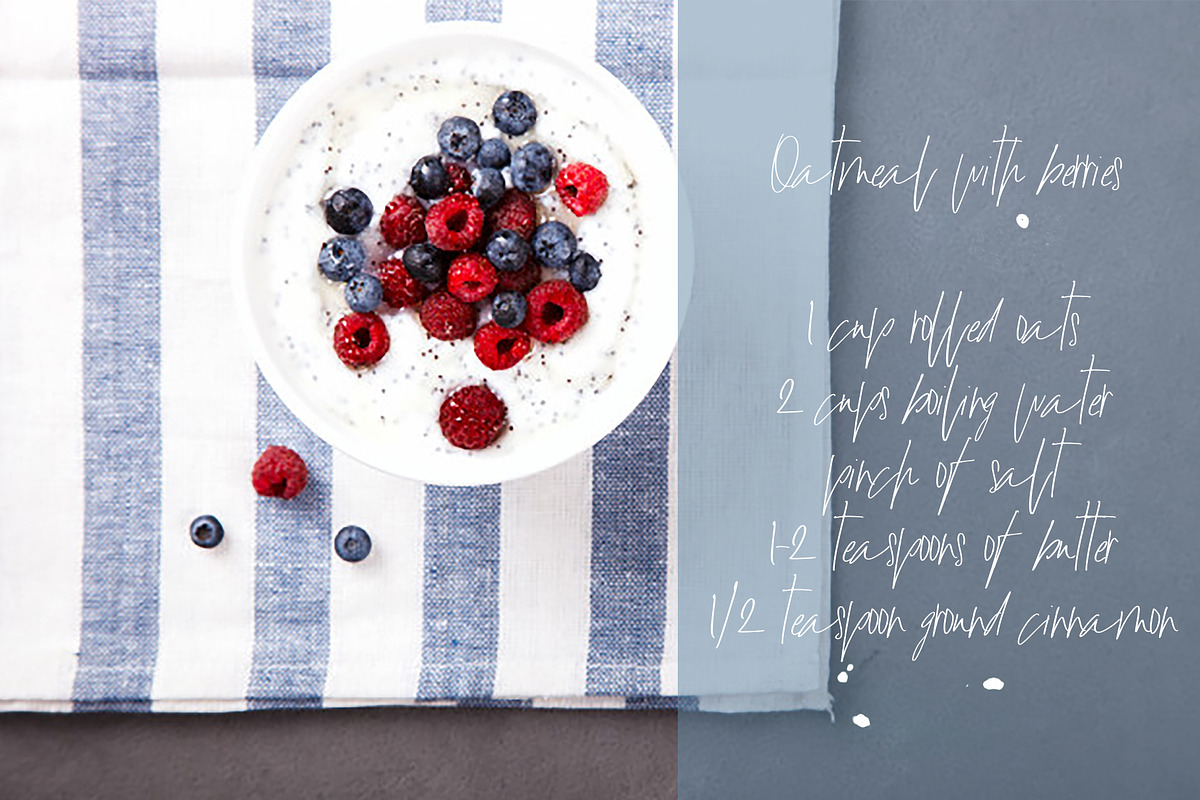 Oatmeal with berries
1 cup rolled oats
2 cups boiling water
pinch of salt
1-2 teaspoons of butter
1/2 teaspoon ground cinnamon